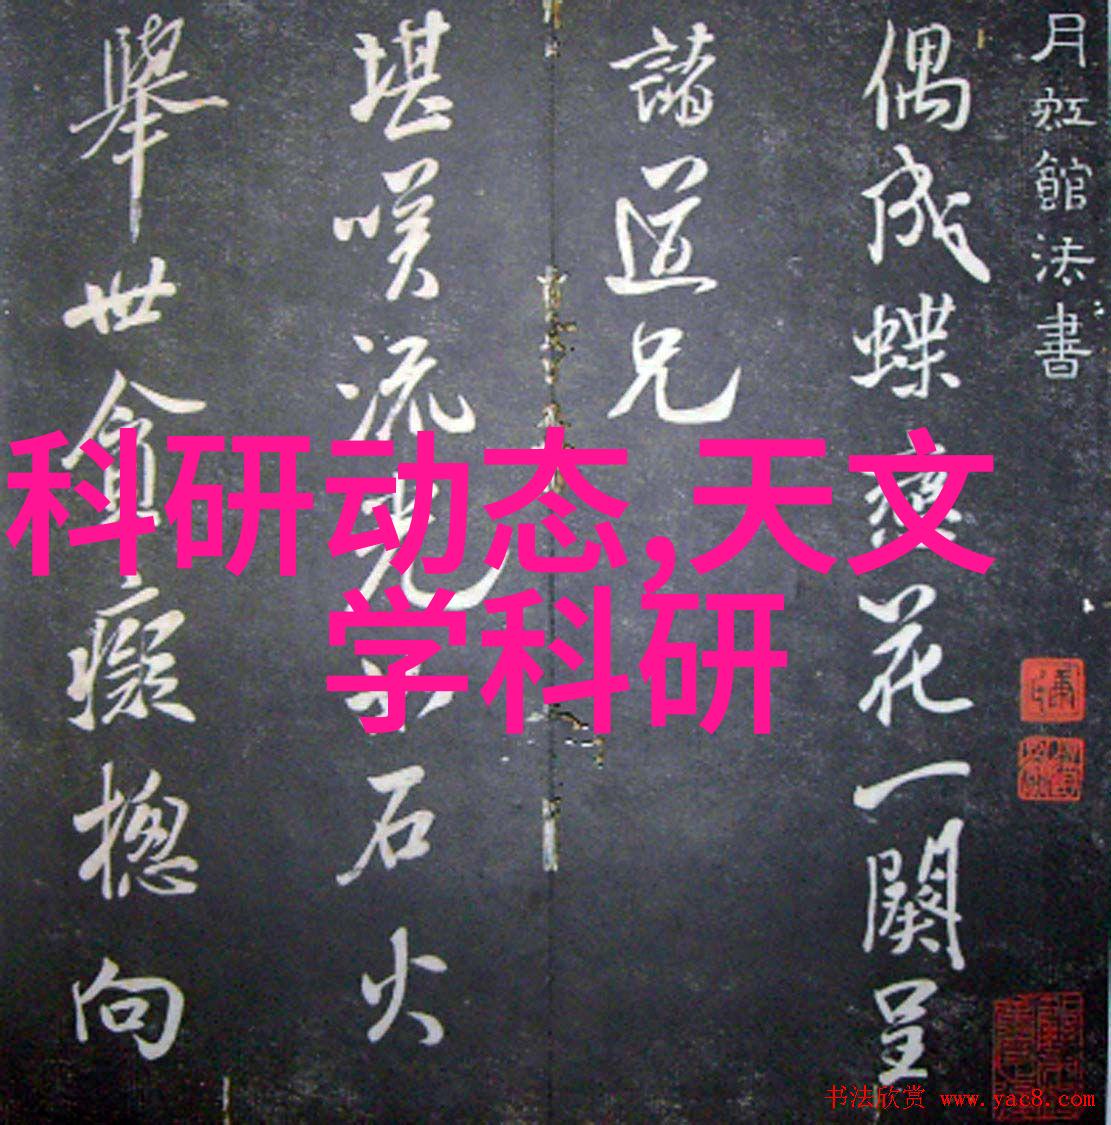 月虹館法書
偶成蝶戀花一闋呈
諸道兄
堪嘆流光如石火
舉世貪癡揔向
科研动态,天文
学科研
书法欣赏 www.yac8.com